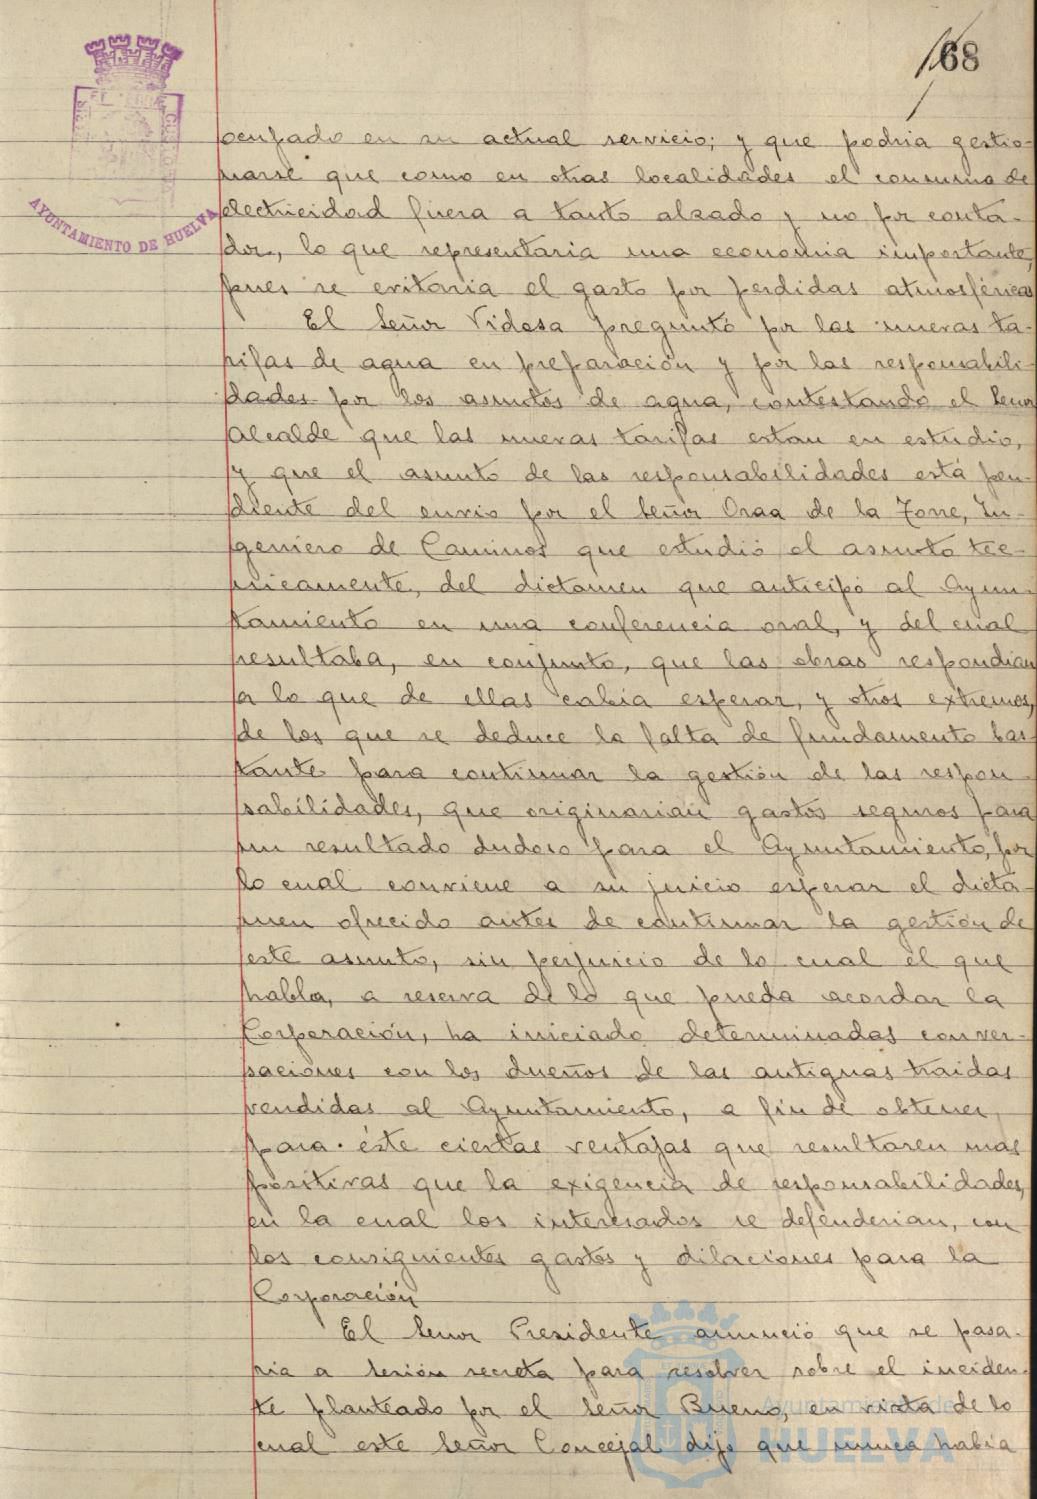 168
AYUNTAMIENTO DE HUELVA
ocupado en su actual servicio; y que podria gestio-
narse que como en otras localidades el consumo de
electricidad fuera a tanto alzado y no por conta-
dor, lo que representaria una economia importante,
pues se evitaria el gasto por perdidas atmosféricas
El Señor Videsa preguntó por las nuevas ta-
rifas de agua en preparación y por las responsabili-
dades por los asuntos de agua, contestando el Señor
Alcalde que las nuevas tarifas estan en estudio,
y que el asunto de las responsabilidades está pen-
diente del envio por el Señor Oraa de la Torre, In-
geniero de Caminos que estudió el asunto tec-
nicamente, del dictamen que anticipó al Ayun-
tamiento en una conferencia oral, y del cual
resultaba, en conjunto, que las obras respondian
a lo que de ellas cabia esperar, y otros extremos,
de los que se deduce la falta de fundamento bas-
tante para continuar la gestión de las respon-
sabilidades, que originarian gastos seguros para
un resultado dudoso para el Ayuntamiento, por
lo cual conviene a su juicio esperar el dicta-
men ofrecido antes de continuar la gestión de
este asunto, sin perjuicio de lo cual el que
habla, a reserva de lo que pueda acordar la
Corporación, ha iniciado determinadas conver-
saciones con los dueños de las antiguas traidas
vendidas al Ayuntamiento, a fin de obtener,
para éste ciertas ventajas que resultaren mas
positivas que la exigencia de responsabilidades,
en la cual los interesados se defenderian, con
los consiguientes gastos y dilaciones para la
Corporación
El Señor Presidente anunció que se pasa-
ria a sesión secreta para resolver sobre el inciden-
te planteado por el Señor Bueno, en vista de lo
cual este Señor Concejal dijo que nunca habia
Ayuntamiento de
HUELVA